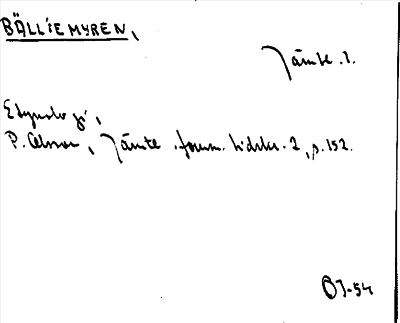 BÄLLIEMYREN,
Jämtl.
Etymologi,
P. Olsson, Jämtl. fornm. tidskr. 2, s. 152.
OJ-54